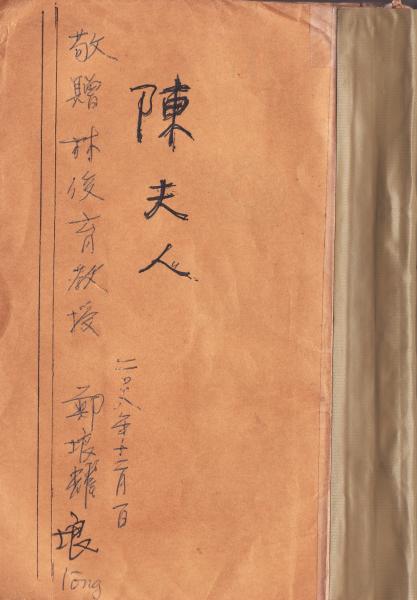 陳夫人
二〇〇八年十二月一日
敬贈 林俊育教授 鄭埌耀
埌
lōng